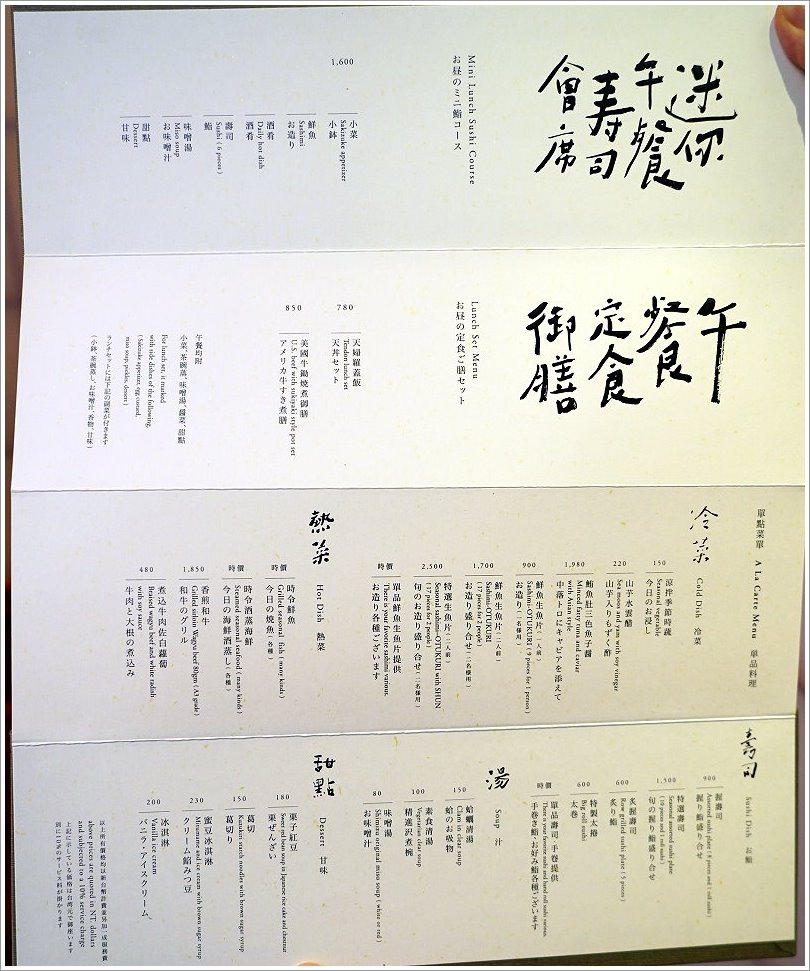 迷你
午餐
壽司
會席
Mini Lunch Sushi Course
お昼のミニ鮨コース
1,600
小菜
Sakizuke appetizer
小鉢
鮮魚
Sashimi
お造り
酒肴
Daily hot dish
酒肴
壽司
Sushi ( 6 pieces )
鮨
味噌湯
Miso soup
お味噌汁
甜點
Dessert
甘味
午餐
定食
御膳
Lunch Set Menu
お昼の定食ご膳セット
780
天婦羅蓋飯
Tendon lunch set
天丼セット
850
美國牛鍋燒煮御膳
U.S. beef with sukiyaki style pot set
アメリカ牛すき煮膳
午餐均附
小菜、茶碗蒸、味噌湯、醬菜、甜點
For lunch set, it marked
with side dishes of the following.
( Sakizuke appetizer, egg custard,
miso soup, pickles, dessert )
ランチセットには下記の副菜が付きます
(小鉢、茶碗蒸し、お味噌汁、香物、甘味)
單點菜單 A La Carte Menu 単品料理
冷菜 Cold Dish 冷菜
150
涼拌季節時蔬
Seasonal vegetable
今日のお浸し
220
山芋水雲醋
Sea moss and yam with soy vinegar
山芋入りもずく酢
1,980
鮪魚肚三色魚子醬
Minced fatty tuna and caviar
with Asian style
中落トロにキャビアを添えて
900
鮮魚生魚片(一人前)
Sashimi-OTUKURI ( 9 pieces for 1 person )
お造り(一名様用)
1,700
鮮魚生魚片(二人前)
Sashimi-OTUKURI
( 17 pieces for 2 people )
お造り盛り合せ(二名様用)
2,500
特選生魚片(二人前)
Seasonal sashimi-OTUKURI with SHUN
( 17 pieces for 2 people )
旬のお造り盛り合せ(二名様用)
時價
單品鮮魚生魚片提供
There is your favorite sashimi various.
お造り各種ございます
熱菜 Hot Dish 熱菜
時價
時令鮮魚
Grilled seasonal fish ( many kinds )
今日の焼魚(各種)
時價
時令酒蒸海鮮
Steamed seasonal seafood ( many kinds )
今日の海鮮酒蒸し(各種)
1,850
香煎和牛
Grilled sirloin Wagyu beef 80gm ( A3 grade )
和牛のグリル
480
煮込牛肉佐白蘿蔔
Braised wagyu beef and white radish
with soy sauce
牛肉と大根の煮込み
壽司 Sushi Dish お鮨
900
握壽司
Assorted sushi plate ( 8 pieces and 1 roll sushi )
握り鮨盛り合せ
1,500
特選壽司
Seasonal assorted sushi plate
( 10 pieces and 1 roll sushi )
旬の握り鮨盛り合せ
600
炙握壽司
Raw grilled sushi plate ( 5 pieces )
炙り鮨
600
特製太捲
Big roll sushi
太巻
時價
單品壽司、手卷提供
There is your favorite sushi and hand roll sushi various.
手巻き鮨、お好み鮨各種ございます
湯 Soup 汁
150
蛤蠣清湯
Clam in clear soup
蛤のお吸物
100
素食清湯
Vegetarian clear soup
精進沢煮椀
80
味噌湯
Shintaro original miso soup ( white or red )
お味噌汁
甜點 Desserts 甘味
180
栗子紅豆
Sweet red bean soup in Japanese rice cake and chestnut
栗ぜんざい
150
葛切
Kutukiri starch noodles with brown sugar syrup
葛切り
230
蜜豆冰淇淋
Mitsumame and ice cream with brown sugar syrup
クリーム餡みつ豆
200
冰淇淋
Vanilla ice cream
バニラ・アイスクリーム
以上所有價格均以新台幣計費並另加一成服務費
above prices are quoted in NT. dollars
and subjected to a 10% service charge.
上記に示している価格は台湾元で御座います
別に10%のサービス料が掛かります